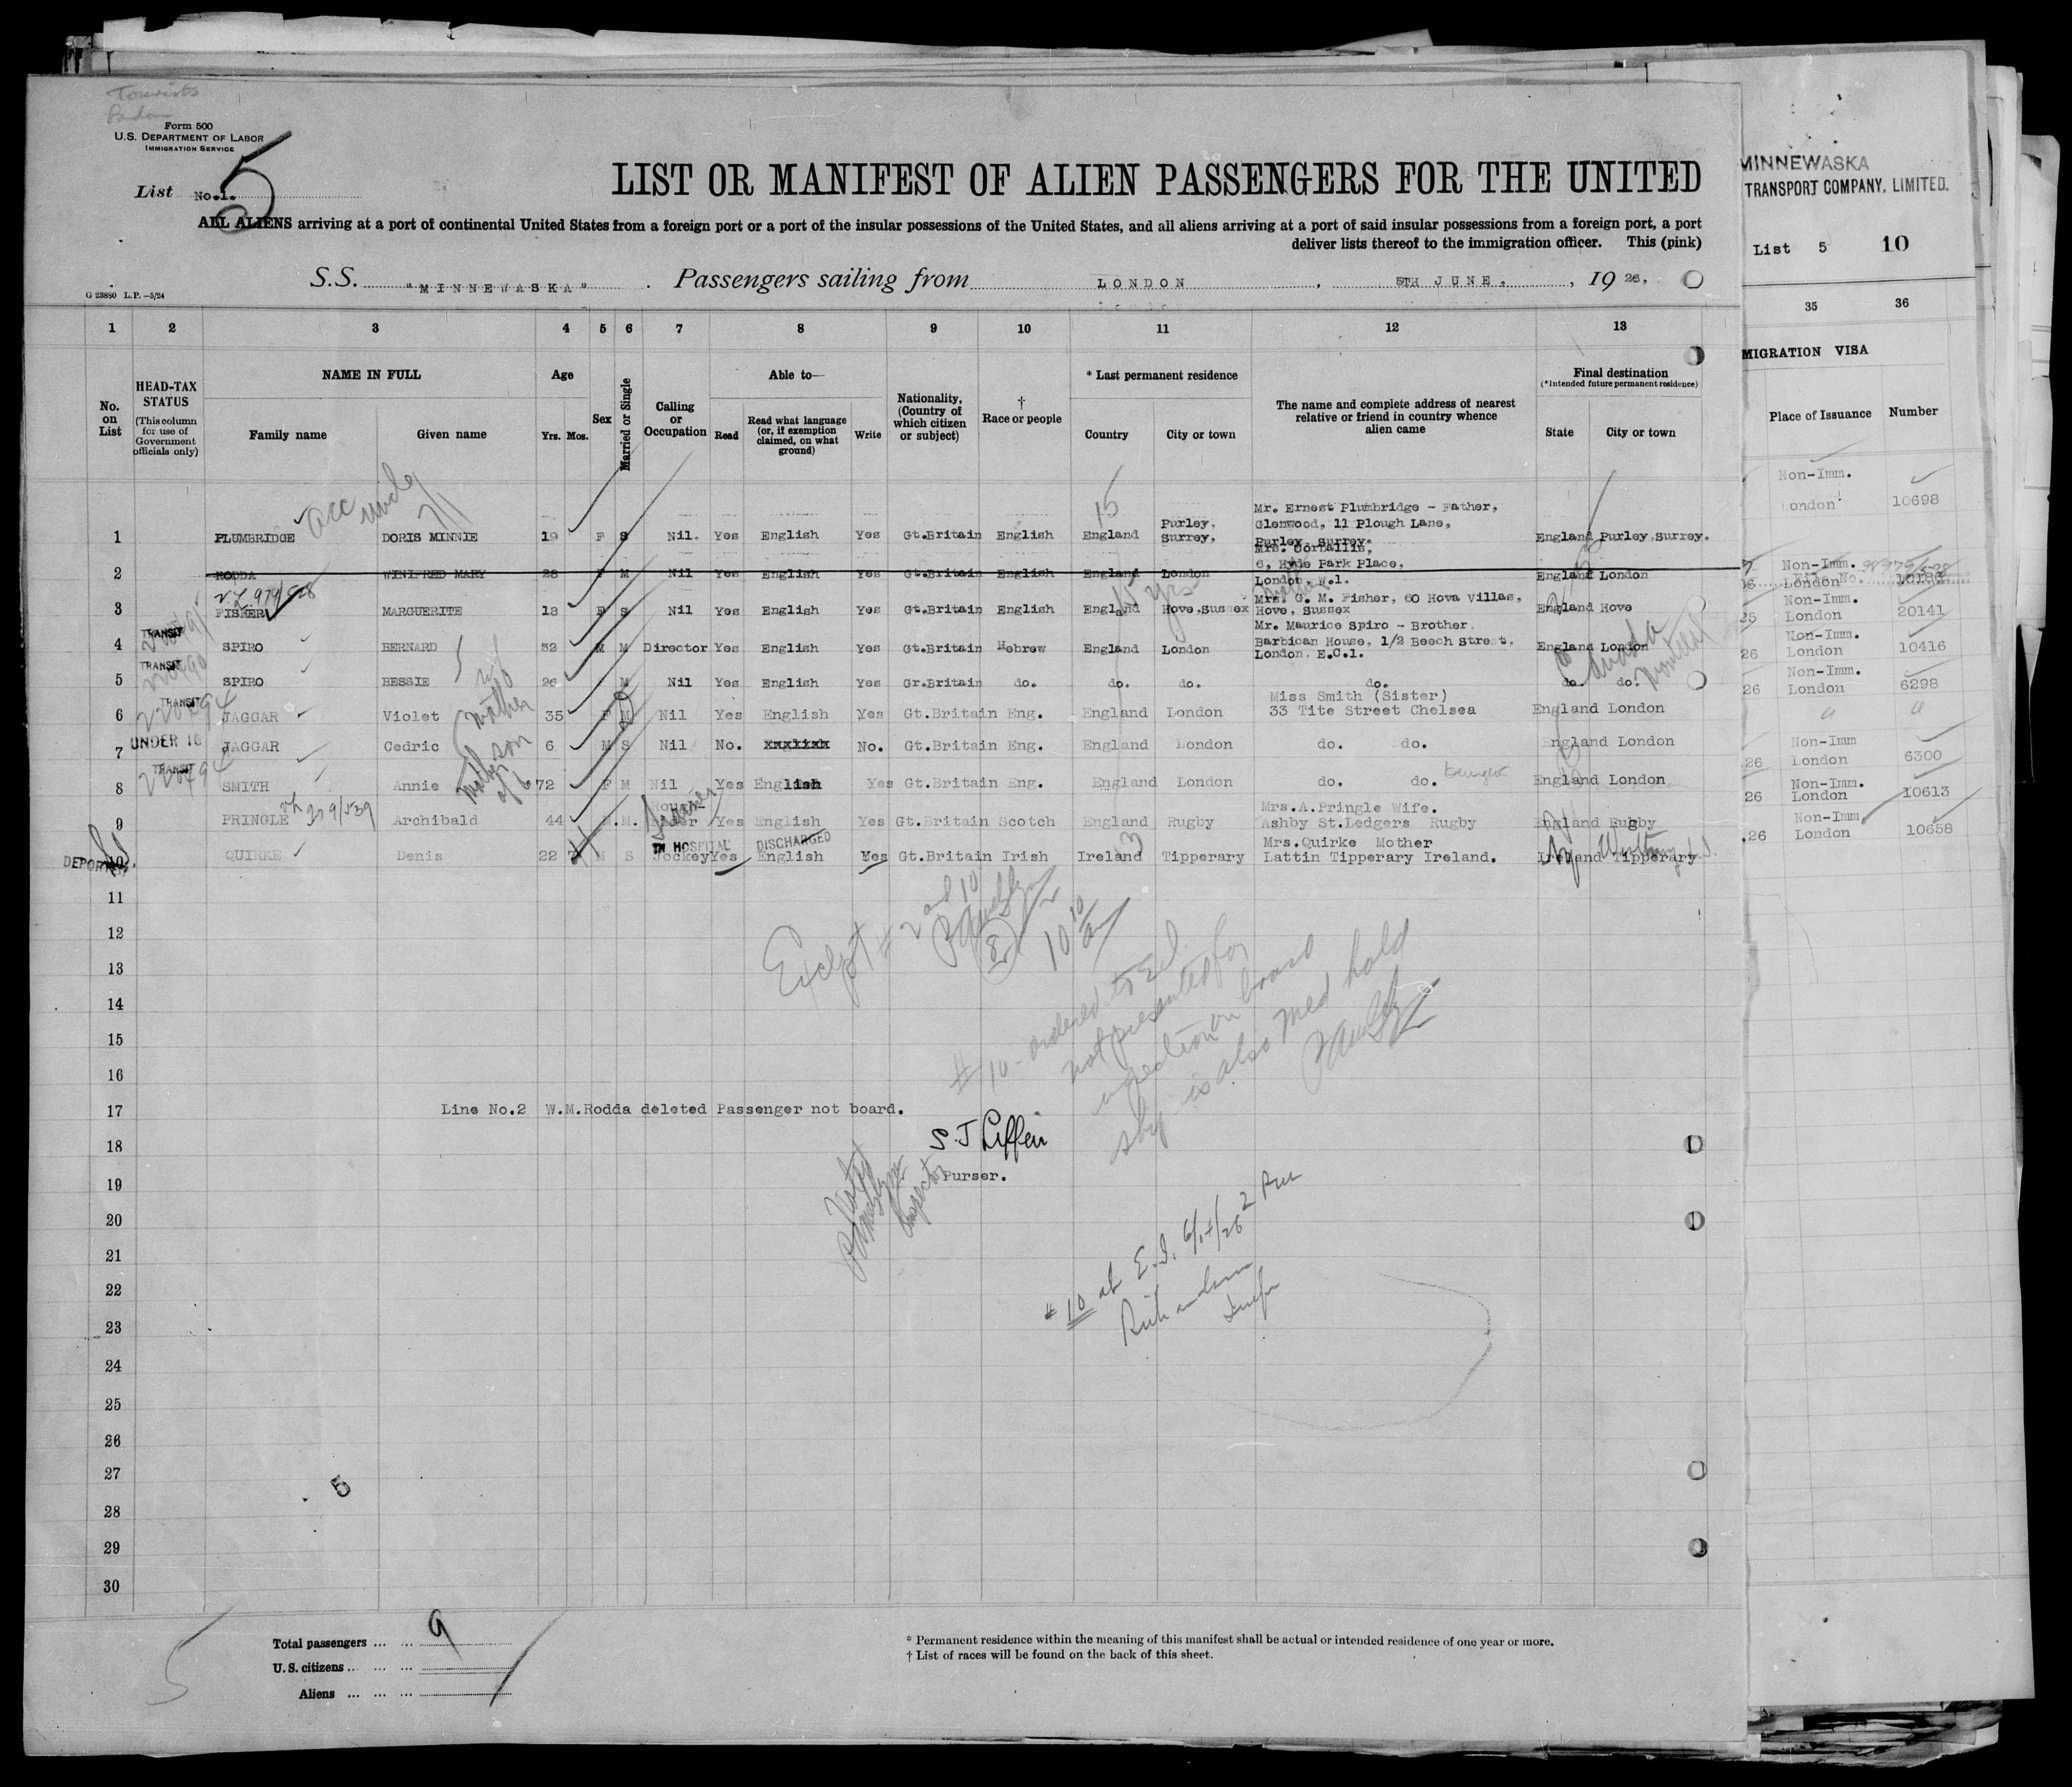 Tourists
Form 500
U.S. DEPARTMENT OF LABOR
IMMIGRATION SERVICE
List No.1. 5
LIST OR MANIFEST OF ALIEN PASSENGERS FOR THE UNITED
ALL ALIENS arriving at a port of continental United States from a foreign port or a port of the insular possessions of the United States, and all aliens arriving at a port of said insular possessions from a foreign port, a port
deliver lists thereof to the immigration officer. This (pink)
S.S. "MINNEWASKA" . Passengers sailing from LONDON , 5TH JUNE. , 19 26,
G 23880 L.P.—5/24
1 2 3 4 5 6 7 8 9 10 11 12 13
No. on List
HEAD-TAX STATUS
(This column for use of Government officials only)
NAME IN FULL
Family name Given name
Age
Yrs. Mos.
Sex
Married or Single
Calling or Occupation
Able to—
Read
Read what language (or, if exemption claimed, on what ground)
Write
Nationality, (Country of which citizen or subject)
† Race or people
* Last permanent residence
Country City or town
The name and complete address of nearest relative or friend in country whence alien came
Final destination
(*Intended future permanent residence)
State City or town
acc uncle 7/1 15
1 PLUMBRIDGE DORIS MINNIE 19 F S Nil. Yes English Yes Gt.Britain English England Purley, Surrey, Mr. Ernest Plumbridge - Father, Glenwood, 11 Plough Lane, Purley, Surrey. England Purley, Surrey.
2 RODDA WINIFRED MARY 28 F M Nil Yes English Yes Gt.Britain English England London Mrs. Corballis, 6, Hyde Park Place, London, W.1. England London
3 FISHER MARGUERITE 18 F S Nil Yes English Yes Gt.Britain English England Hove, Sussex Mrs. G. M. Fisher, 60 Hova Villas, Hove, Sussex England Hove
TRANSIT
4 SPIRO BERNARD 32 M M Director Yes English Yes Gt.Britain Hebrew England London Mr. Maurice Spiro - Brother. Barbican House, 1/2 Beech Street. London, E.C.1. England London
Canada
Montreal
TRANSIT
5 SPIRO BESSIE wife 26 M Nil Yes English Yes Gr.Britain do. do. do. do. do. do.
TRANSIT
220494
6 JAGGAR Violet mother 35 F M Nil Yes English Yes Gt.Britain Eng. England London Miss Smith (Sister) 33 Tite Street Chelsea England London
UNDER 16
7 JAGGAR Cedric son 6 M S Nil No. xxxxxxx No. Gt.Britain Eng. England London do. do. England London
TRANSIT
220494
8 SMITH Annie mother of 6 72 F M Nil Yes English Yes Gt.Britain Eng. England London do. do. England London
9 PRINGLE Archibald 44 M. M. Yes English Yes Gt.Britain Scotch England Rugby Mrs.A.Pringle Wife. Ashby St.Ledgers Rugby England Rugby
IN HOSPITAL DISCHARGED
DEPORTED.
10 QUIRKE Denis 22 M S Jockey Yes English Yes Gt.Britain Irish Ireland Tipperary Mrs.Quirke Mother Lattin Tipperary Ireland. Ireland Tipperary
11
Except # 2 and 10
12
8
10 10 am
13
14
# 10 - ordered to E.I.
not presented for
15
inspection on board
16
ship is also med hold
17 Line No.2 W.M.Rodda deleted Passenger not board.
18
Purser.
19
Noted
Inspector
20
21
# 10 at E.I. 2 PM
22
23
24
25
26
27
5
28
29
30
Total passengers ... ... 9
U.S. citizens ... ... ...
Aliens ... ... ...
5
* Permanent residence within the meaning of this manifest shall be actual or intended residence of one year or more.
† List of races will be found on the back of this sheet.
MINNEWASKA
TRANSPORT COMPANY, LIMITED.
List 5 10
35 36
MIGRATION VISA
Place of Issuance Number
Non-Imm.
London 10698
Non-Imm.
London 10186
Non-Imm.
25 London 20141
Non-Imm.
26 London 10416
Non-Imm.
26 London 6298
" "
Non-Imm
26 London 6300
Non-Imm.
26 London 10613
Non-Imm
.26 London 10658